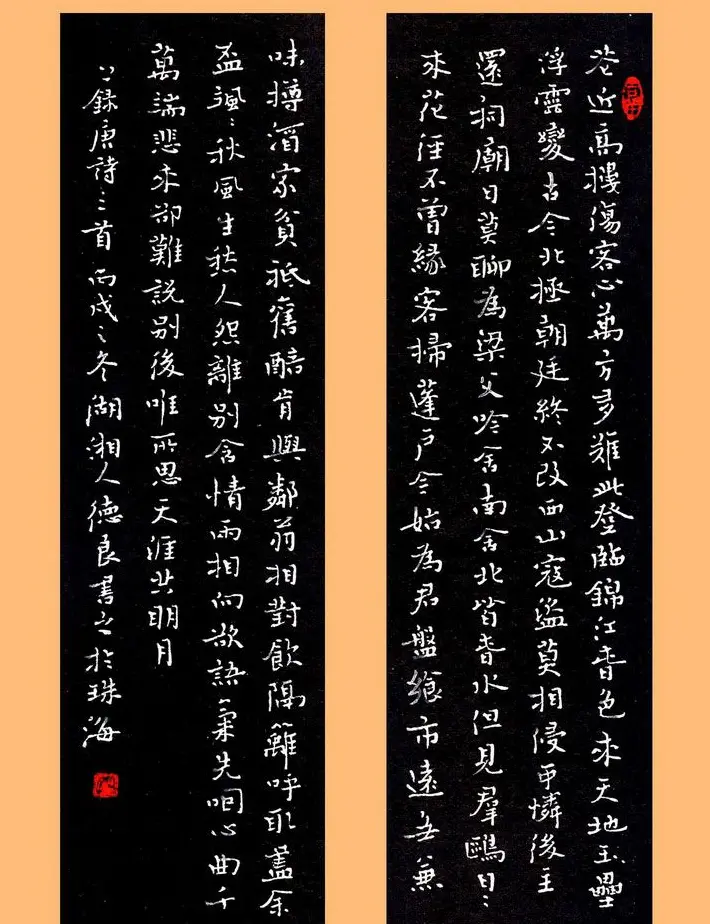 花近高樓傷客心萬方多難此登臨錦江春色來天地玉壘
浮雲變古今北極朝廷終不改西山寇盜莫相侵可憐後主
還祠廟日莫聊為梁父吟舍南舍北皆春水但見羣鷗日〻
來花徑不曾緣客掃蓬戶今始為君盤飧市遠無兼
味樽酒家貧祗舊醅肯與鄰翁相對飲隔籬呼取盡余
盃颯〻秋風生愁人怨離別含情兩相向欲語氣先咽心曲千
萬端悲來卻難說別後唯所思天涯共明月
錄唐詩三首丙戌之冬湖湘人德良書之於珠海